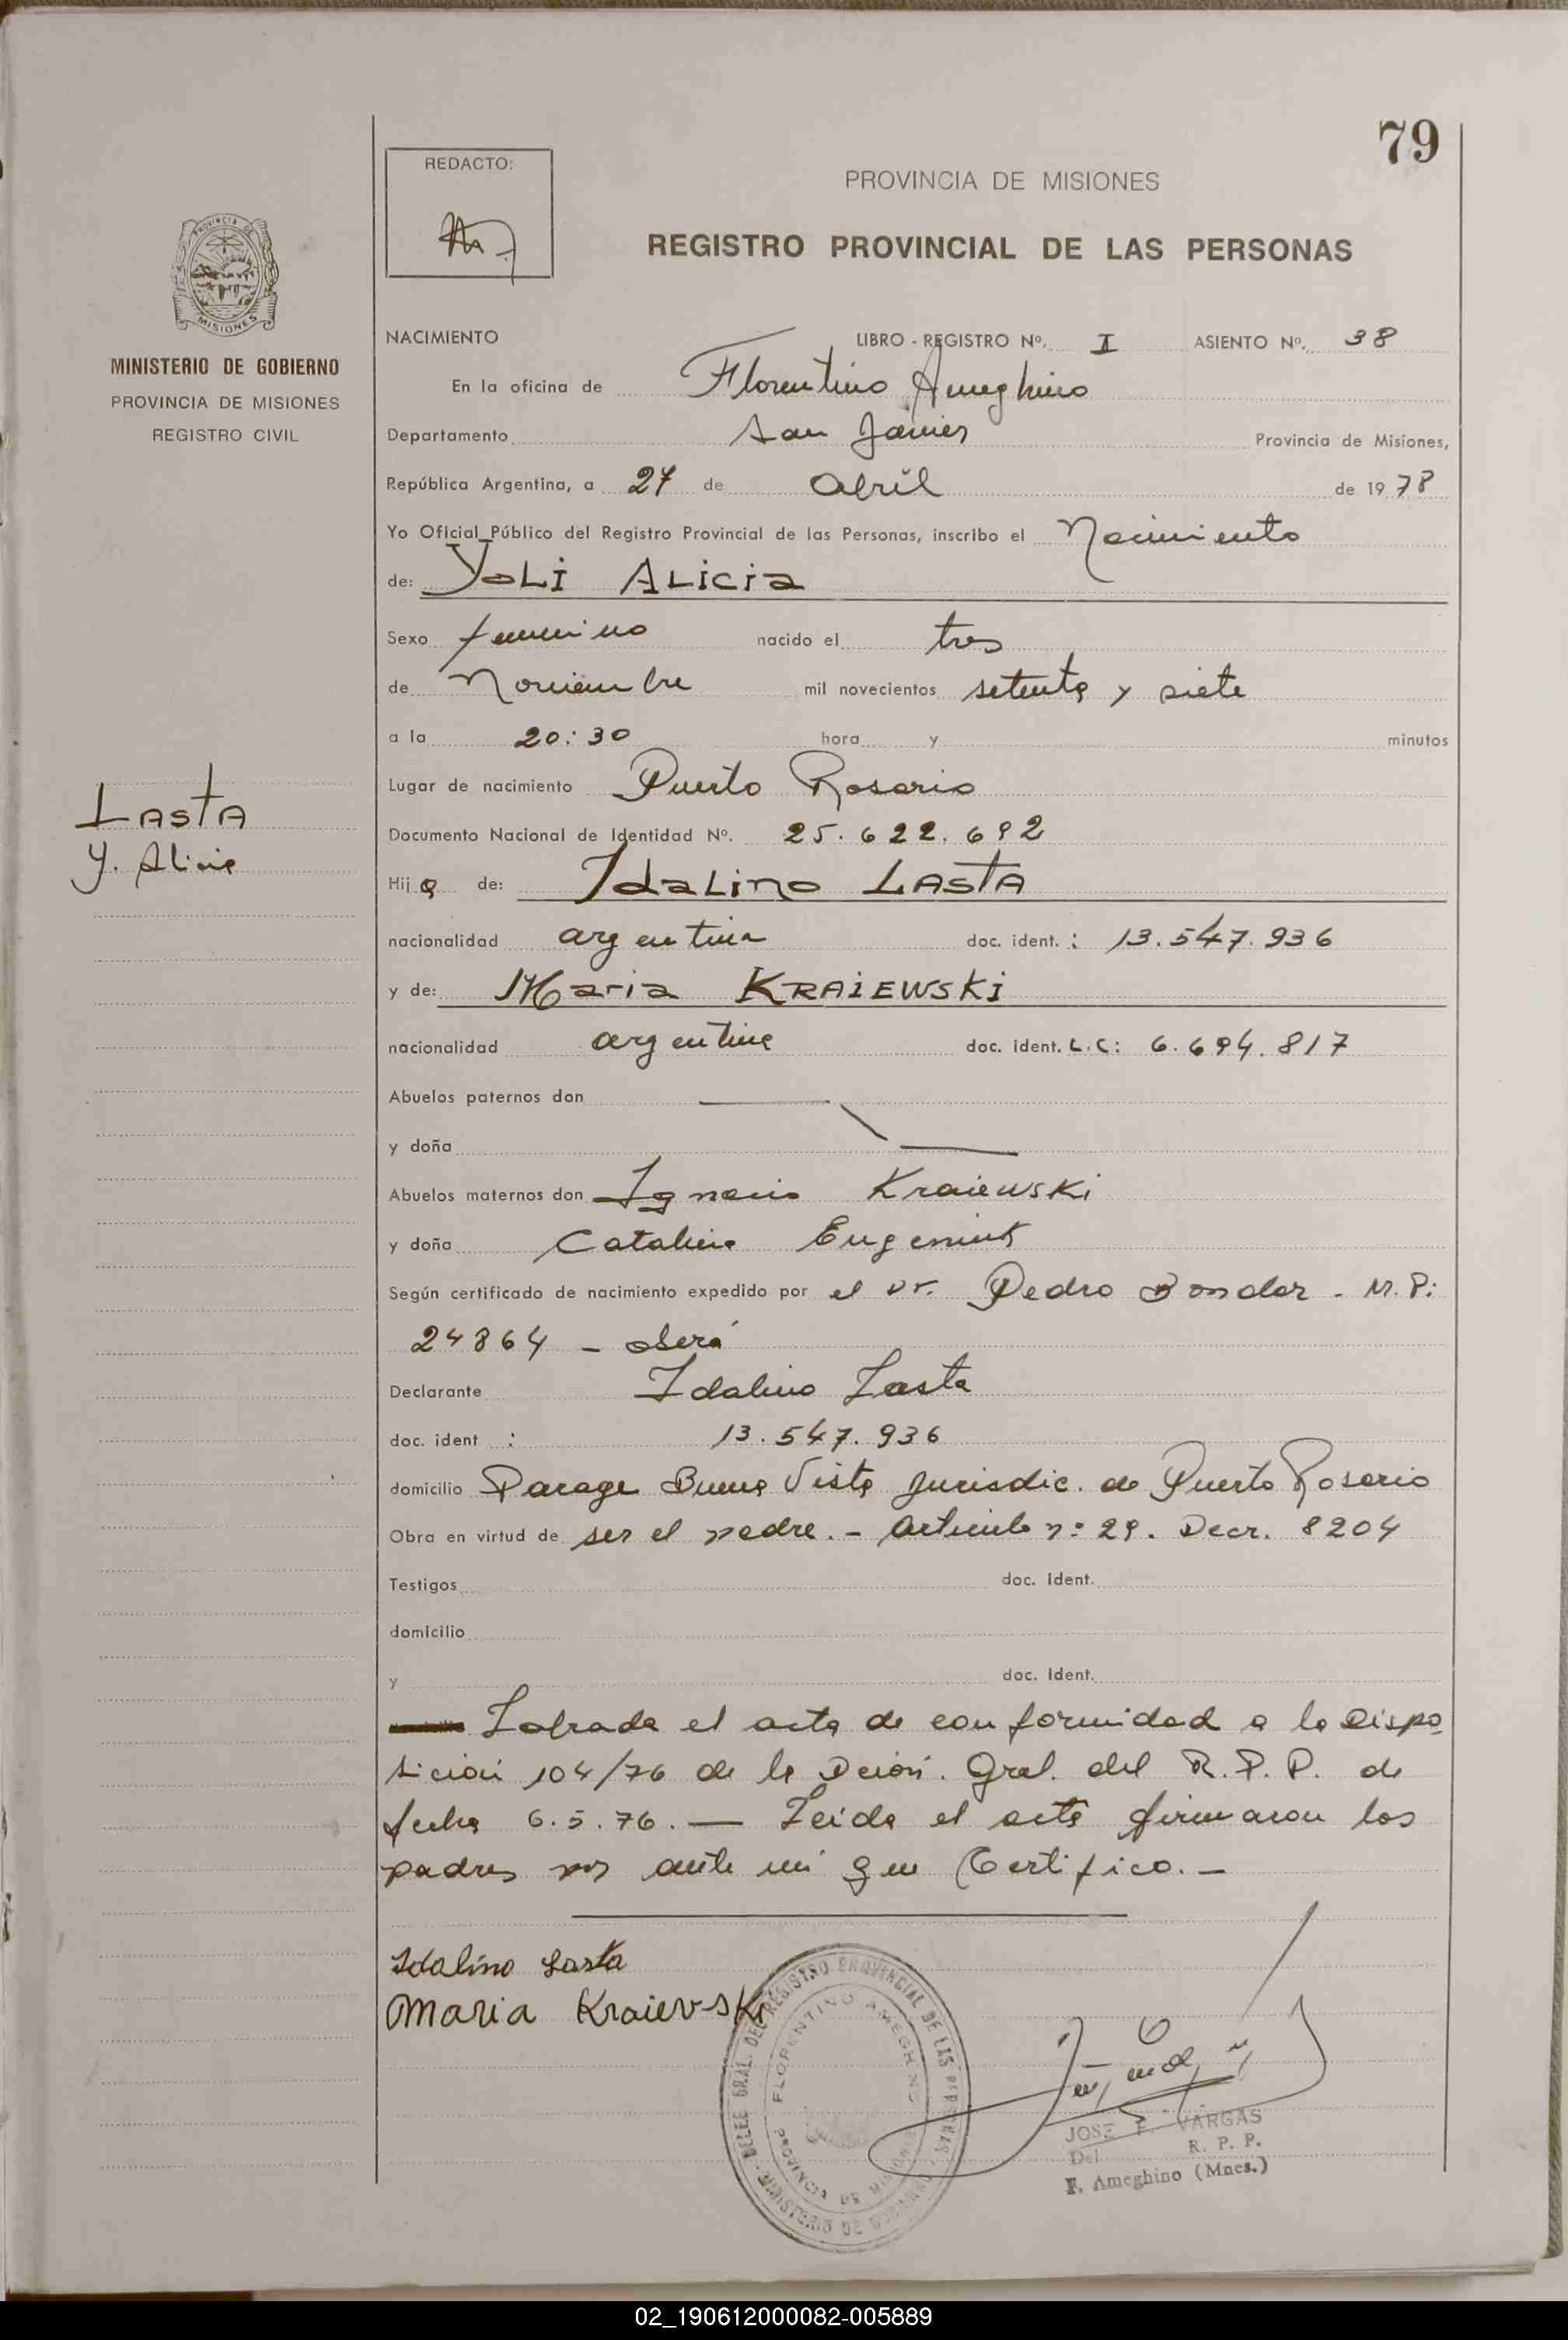 79
REDACTO:
PROVINCIA DE MISIONES
REGISTRO PROVINCIAL DE LAS PERSONAS
PROVINCIA DE
MISIONES
MINISTERIO DE GOBIERNO
PROVINCIA DE MISIONES
REGISTRO CIVIL
NACIMIENTO LIBRO - REGISTRO Nº. I ASIENTO Nº. 38
En la oficina de Florentino Ameghino
Departamento San Javier Provincia de Misiones,
República Argentina, a 27 de abril de 1978
Yo Oficial Público del Registro Provincial de las Personas, inscribo el Nacimiento
de: YoLi ALicia
Sexo femenino nacido el tres
de Noviembre mil novecientos setenta y siete
a la 20:30 hora y minutos
Lugar de nacimiento Puerto Rosario
LASTA
Documento Nacional de Identidad Nº. 25.622.692
Y. Alicia
Hija de: IdaLino LASTA
nacionalidad argentina doc. ident.: 13.547.936
y de: Maria KRAiEWSKi
nacionalidad argentina doc. ident. L.C: 6.694.817
Abuelos paternos don
y doña
Abuelos maternos don Ignacio Kraiewski
y doña Catalina
Según certificado de nacimiento expedido por el Dr. Pedro Bondar - M.P:
24864 - Oberá
Declarante Idalino Lasta
doc. ident : 13.547.936
domicilio Parage Buena Vista Jurisdic. de Puerto Rosario
Obra en virtud de ser el padre. - Articulo nº 29. Decr. 8204
Testigos doc. Ident.
domicilio
y doc. Ident.
Labrada el acta de conformidad a la Dispo
sición 104/76 de la Dción. Gral. del R.P.P. de
fecha 6.5.76. — Leida el acta firmaron los
padres por ante mi que Certifico. -
Idalino Lasta
Maria Kraievski
DELEG. GRAL. DEL REGISTRO PROVINCIAL DE LAS PERSONAS
FLORENTINO AMEGHINO
PROVINCIA DE MISIONES
MINISTERIO DE GOBIERNO
JOSE F. VARGAS
Del R. P. P.
F. Ameghino (Mnes.)
02_190612000082-005889